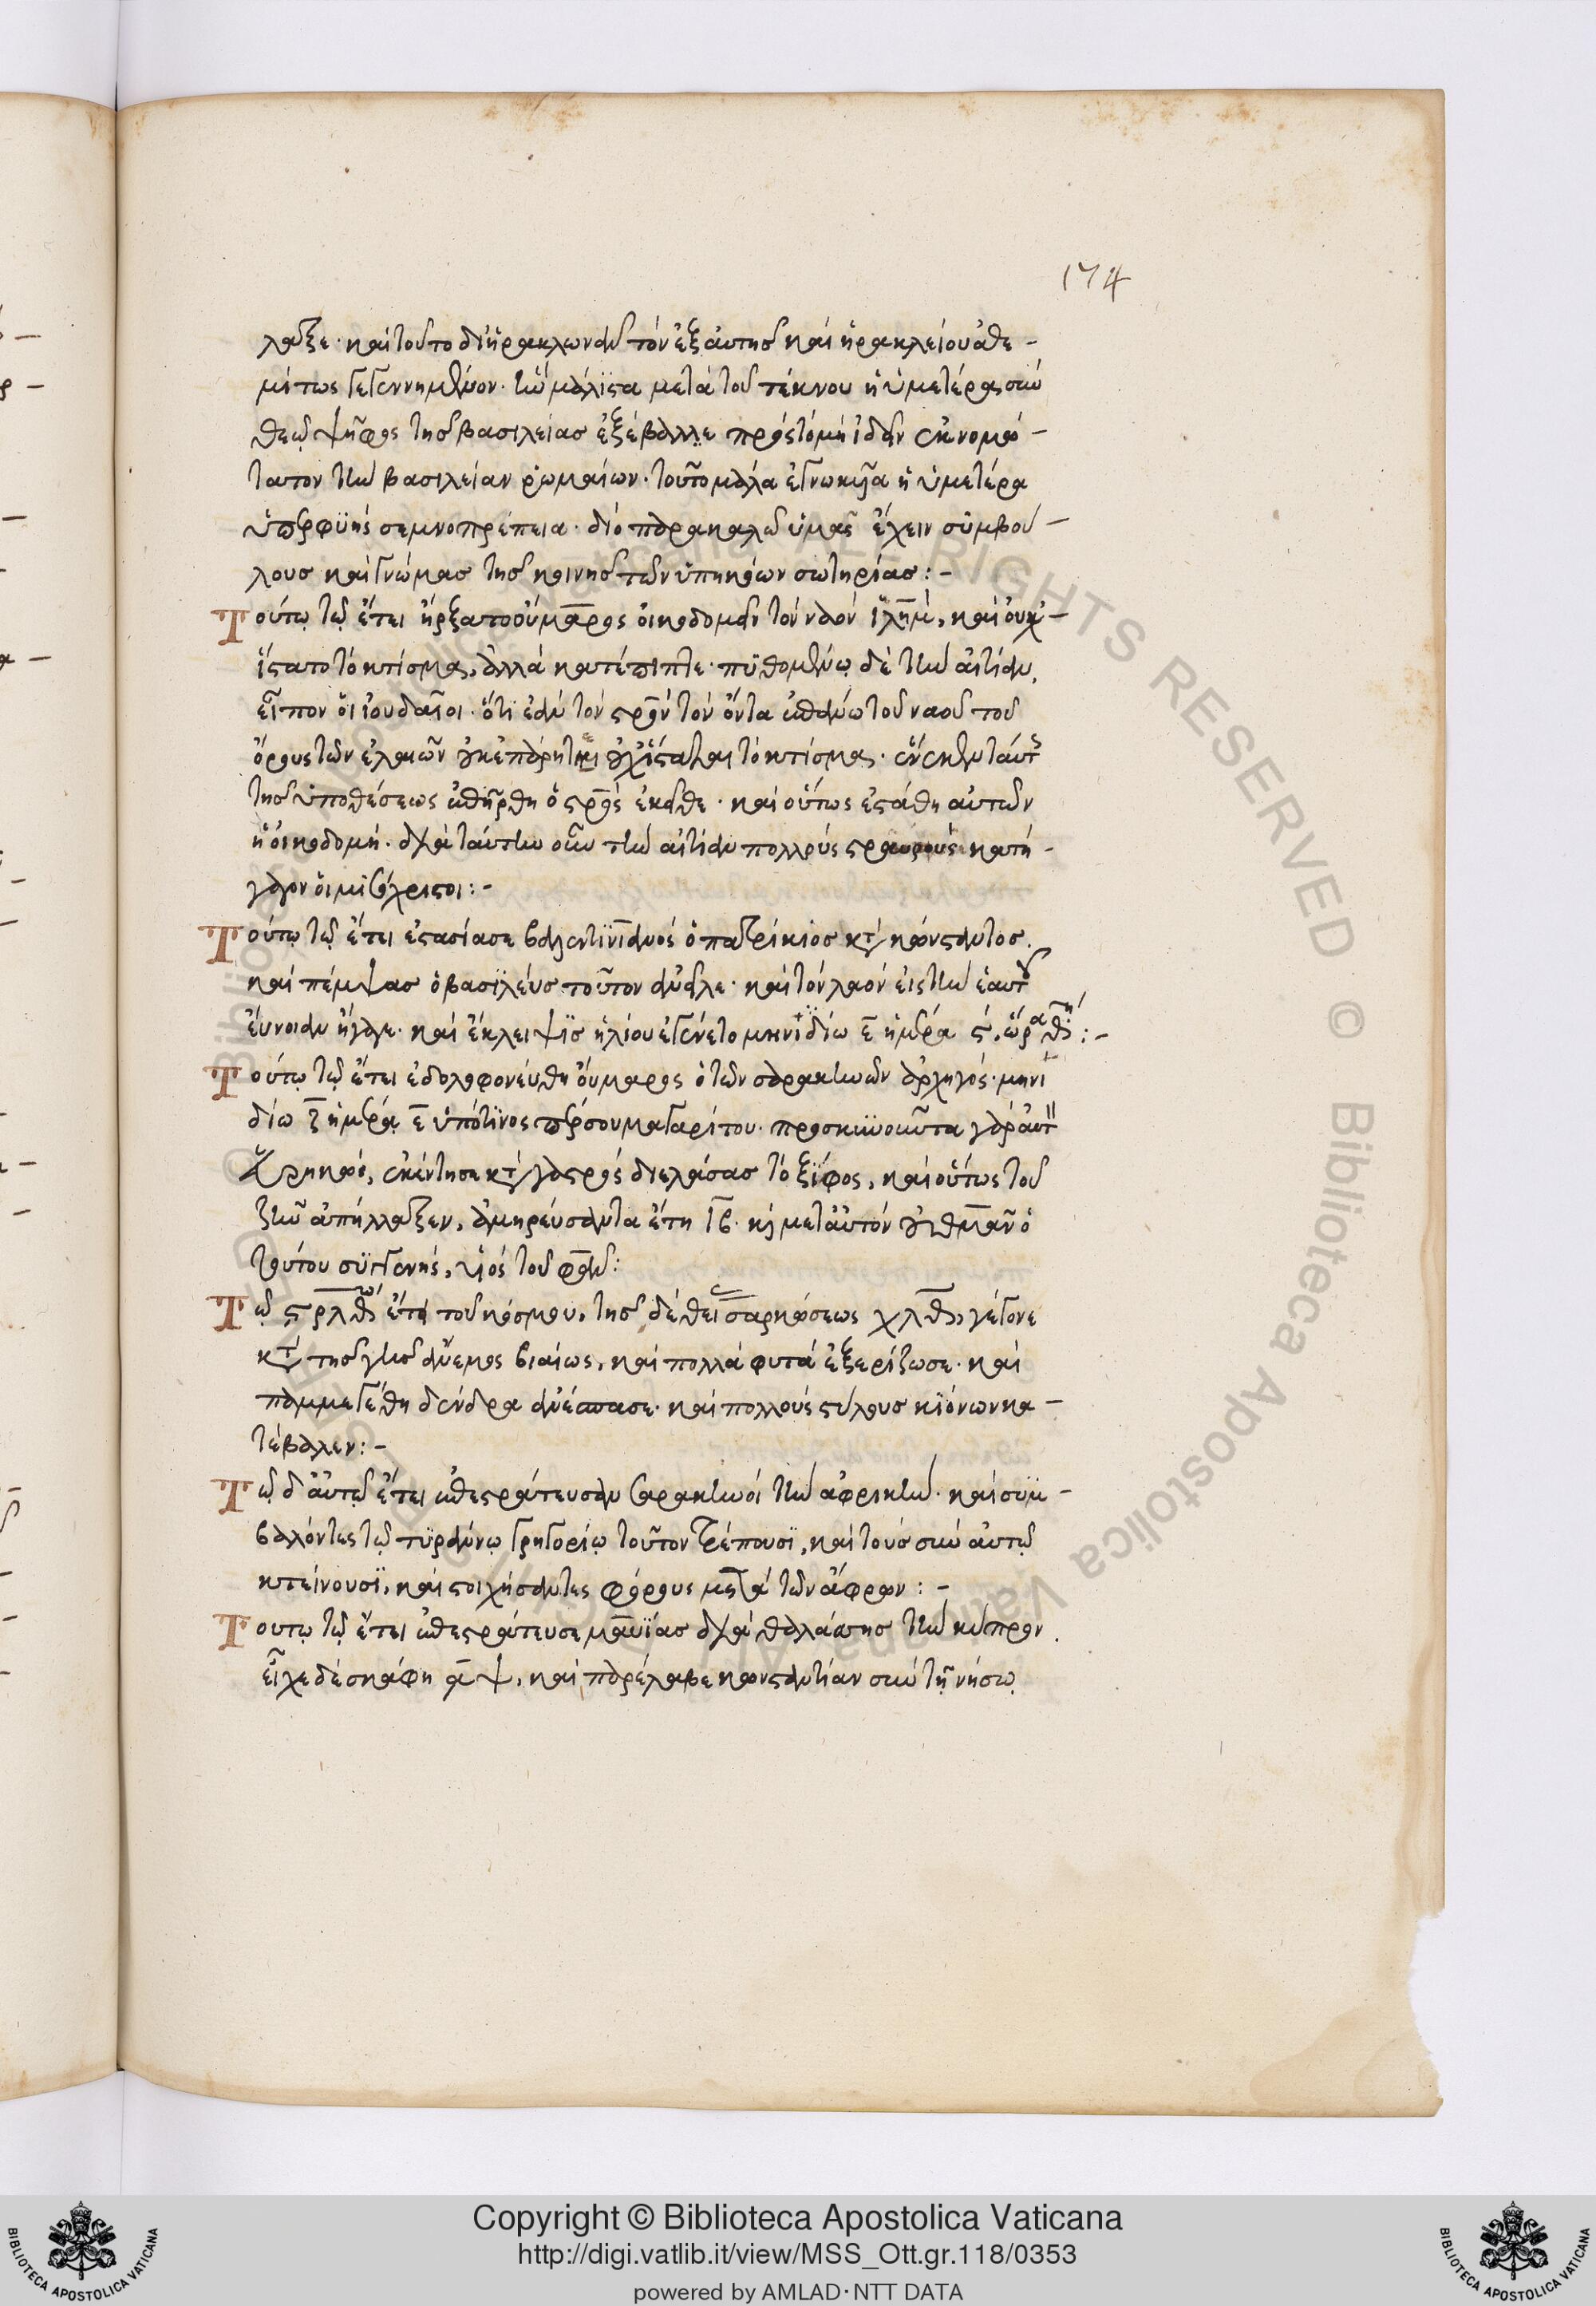 174
λαξε· καὶ τοῦτο δι' ἡρακλωνᾶν τὸν ἐξ αὐτῆσ καὶ ἡρακλείου ἀθε-
μίτως γεγεννημένον· ὧ μάλιϊστα μετὰ τοῦ τέκνου ἡ ὑμετέρα σὺν
θεῷ ψῆφος τῆσ βασιλείασ ἐξέβαλλε πρὸς τὸ μὴ ἰδεῖν ἐκνομώ-
τατον τὴν βασιλείαν ῥωμαίων· τοῦτο μάλα ἐγνωκυῖα ἡ ὑμετέρα
ὑπερφυὴς σεμνοπρέπεια· διὸ παρακαλῶ ὑμᾶς ἔχειν συμβού-
λουσ καὶ γνώμασ τῆσ κοινῆσ τῶν ὑπηκόων σωτηρίασ:-
Τούτῳ τῷ ἔτει ἤρξατο οὔμαρος οἰκοδομεῖν τὸν ναὸν ἰλημ, καὶ οὐχ-
ἵστατο τὸ κτίσμα, ἀλλὰ κατέπιπτε· πυθομένῳ δὲ τὴν αἰτίαν,
εἶπον οἱ ἰουδαῖοι· ὅτι ἐὰν τὸν στρον τὸν ὄντα ἐπάνω τοῦ ναοῦ τοῦ
ὄρους τῶν ἐλαιῶν οὐκ ἐπάρητε οὐχ ἵσταται τὸ κτίσμα· ἕνεκεν ταύτ
τῆσ ὑποθέσεως ἐπήρθη ὁ στρος ἐκεῖθε· καὶ οὕτως ἐστάθη αὐτῶν
ἡ οἰκοδομή· διὰ ταύτην οὖν τὴν αἰτίαν πολλοὺς σταυροὺς κατή-
γαγον οἱ μισόχριστοι:-
Τούτῳ τῷ ἔτει ἐστασίασε βαλεντινιανὸς ὁ πατρίκιοσ κτ κώνσταντοσ.
καὶ πέμψασ ὁ βασιλεὺσ τοῦτον ἀνεῖλε· καὶ τὸν λαὸν εἰς τὴν ἑαυτ
εὔνοιαν ἤγαγε· καὶ ἔκλειψισ ἡλίου ἐγένετο μηνὶ δίω ε ἡμέρα ς, ὥρα θ:-
Τούτῳ τῷ ἔτει ἐδολοφονεύθη οὔμαρος ὁ τῶν σαρακηνῶν ἀρχηγός· μηνὶ
δίω ζ ἡμέρᾳ ε ὑπό τινος πέρσου μαγαρίτου· προσκυνοῦντα γὰρ αὐτ
εὑρηκώς, ἐκέντησε κτ γαστρὸς διελάσασ τὸ ξίφος, καὶ οὕτως τοῦ
ζῆν ἀπήλλαξεν, ἀμηρεύσαντα ἔτη ιβ· κὶ μετ' αὐτὸν οὐθμᾶν ὁ
τούτου συγγενής, υἱὸς τοῦ φαν:
Τῷ ςρλθ ἔτει τοῦ κόσμου, τῆσ δὲ θείσ σαρκώσεως χλθ, γέγονε
κτ τῆσ γῆσ ἄνεμος βιαίως, καὶ πολλὰ φυτὰ ἐξερίζωσε· καὶ
παμμεγέθη δένδρα ἀνέσπασε· καὶ πολλοὺς στύλουσ κιόνων κα-
τέβαλεν:-
Τῷ δ' αὐτῷ ἔτει ἐπεστράτευσαν σαρακηνοὶ τὴν ἀφρικὴν· καὶ συμ-
βαλόντες τῷ τυράννῳ γρηγορίῳ τοῦτον τρέπουσι, καὶ τοὺσ σὺν αὐτῷ
κτείνουσι, καὶ στοιχήσαντες φόρους μετὰ τῶν ἄφρων:-
Τουτῳ τῷ ἔτει ἐπεστράτευσε μαυΐασ διὰ θαλάσσησ τὴν κύπρον.
εἶχε δὲ σκάφη αψ, καὶ παρέλαβε κωνσταντίαν σὺν τῇ νήσῳ
Copyright © Biblioteca Apostolica Vaticana
http://digi.vatlib.it/view/MSS_Ott.gr.118/0353
powered by AMLAD·NTT DATA
BIBLIOTECA APOSTOLICA VATICANA
BIBLIOTECA APOSTOLICA VATICANA